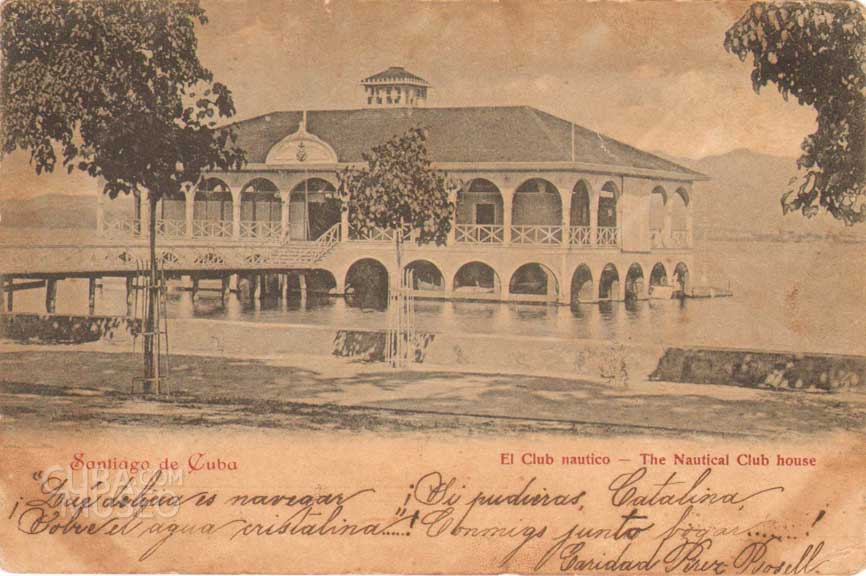 Santiago de Cuba
El Club nautico — The Nautical Club house
"Que delicia es navegar
¡Sobre el agua cristalina....!
¡Si pudieras, Catalina,
Conmigo junto bogar......!
Caridad Perez Rosell.